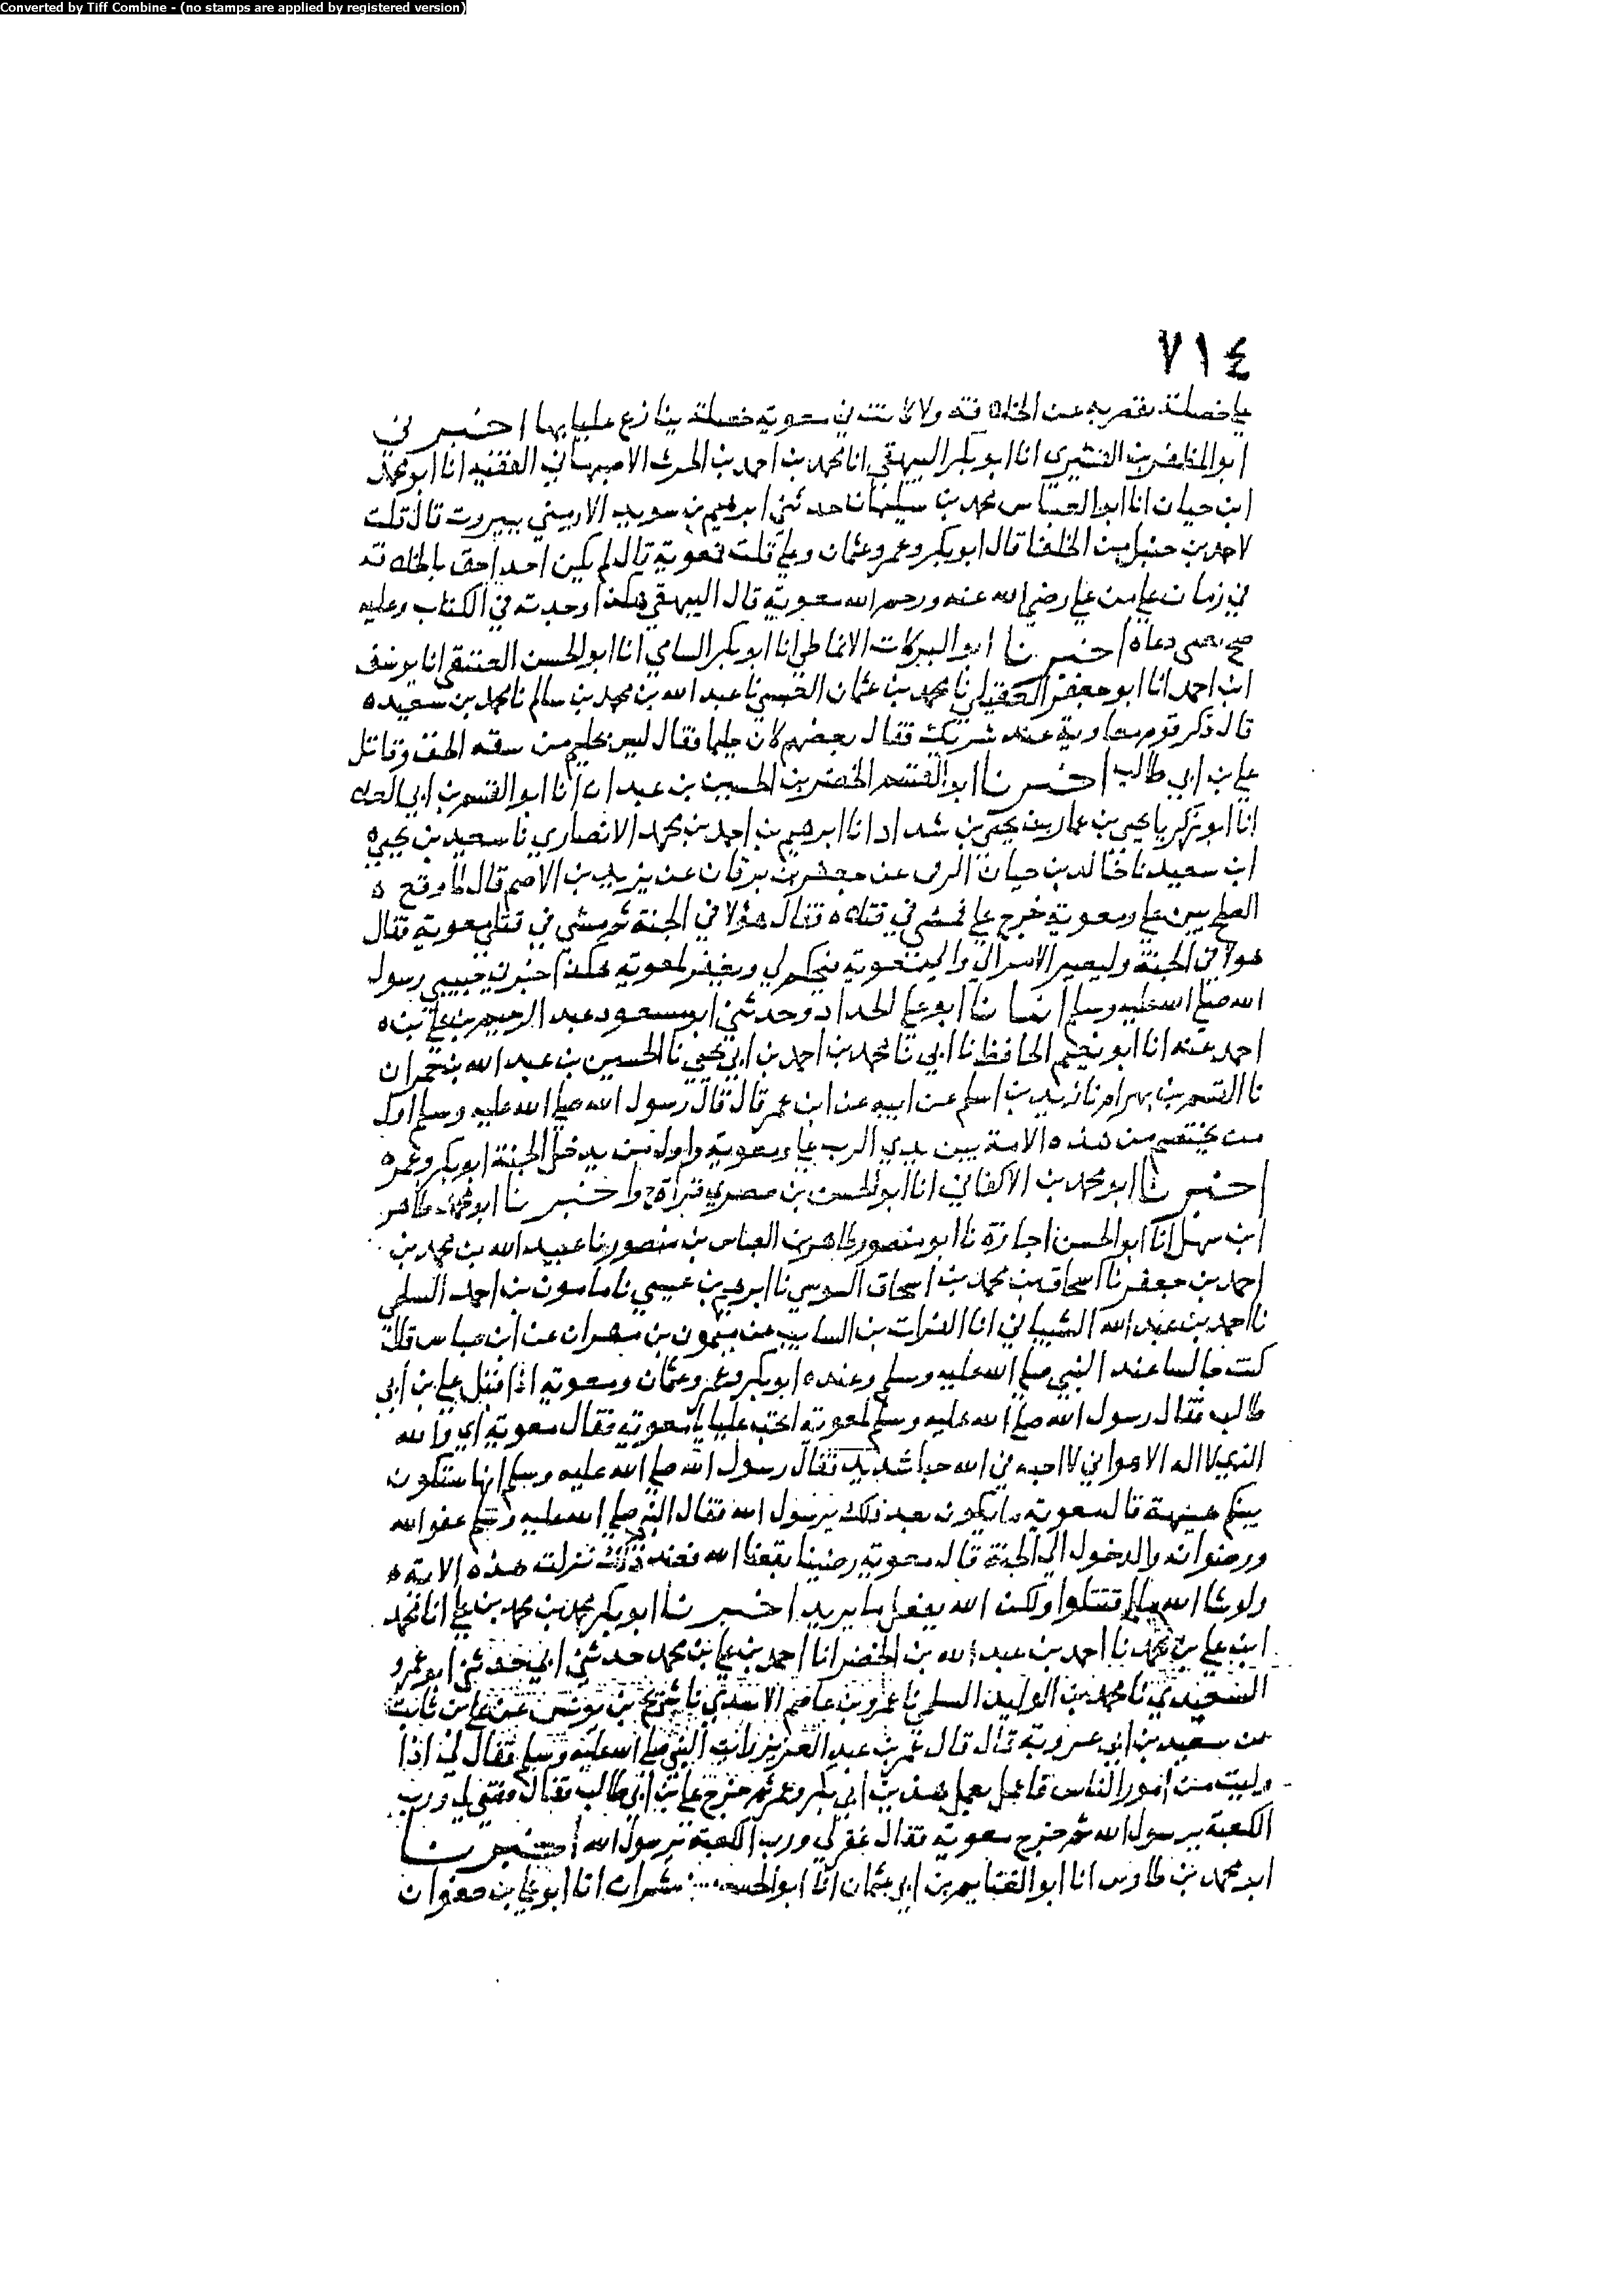 Converted by Tiff Combine - (no stamps are applied by registered version)
٧١٤
علي خصلة تقصر به عن الخلافة ولا كانت في معوية خصلة ينازع عليا بها اخبرني
ابو المظفر بن القشيري انا ابو بكر البيهقي انا محمد بن احمد بن الحرث الاصبهاني الفقيه انا ابو محمد
ابن حيان انا ابو العباس محمد بن سليمان حدثني ابرهيم بن سويد الارميني ببيروت قال قلت
لاحمد بن حنبل من الخلفا قال ابو بكر وعمر وعثمان وعلي قلت فمعوية قال لم يكن احد احق بالخلافة
في زمان علي من علي رضي الله عنه ورحم الله معوية قال البيهقي هكذا وجدته في الكتاب وعليه
صح اخبرنا ابو البركات الانماطي انا ابو بكر الشامي انا ابو الحسن العتيقي انا يوسف
ابن احمد انا ابو جعفر العقيلي نا محمد بن عثمان العبسي نا عبد الله بن محمد بن سالم نا محمد بن سعيد
قال ذكر قوم معاوية عند شريك فقال بعضهم كان حليما فقال ليس بحليم من سفه الحق وقاتل
علي بن ابي طالب اخبرنا ابو القسم الخضر بن الحسين بن عبدان انا ابو القسم بن ابي العلا
انا ابو زكريا يحيى بن عمار بن يحيى بن شداد انا ابرهيم بن احمد بن محمد الانصاري نا سعيد بن يحيى
ابن سعيد نا خالد بن حيان الرقى عن جعفر بن برقان عن يزيد بن الاصم قال لما وقع
الصلح بين علي ومعوية خرج علي فمشى في قتلاه فقال هؤلا في الجنة ثم مشى في قتلى معوية فقال
هولا في الجنة وليصير الامر الي والي معوية فيحكم لي ويغفر لمعوية هكذا اخبرني حبيبي رسول
الله صلى الله عليه وسلم انبانا ابو علي الحداد وحدثني ابو مسعود عبد الرحيم بن علي بن
احمد عنه انا ابو نعيم الحافظ نا ابي نا محمد بن احمد بن ابي يحيى نا الحسين بن عبد الله بن حمران
نا القسم بن بهرام نا زيد بن اسلم عن ابيه عن ابن عمر قال قال رسول الله صلى الله عليه وسلم اول
من يختصم من هذه الامة بين يدي الرب علي ومعوية واول من يدخل الجنة ابو بكر وعمر
اخبرنا ابو محمد بن الاكفاني انا ابو الحسن بن صصري قراة ح واخبرنا ابو محمد طاهر
ابن سهل انا ابو الحسن اجازة نا ابو منصور طاهر بن العباس بن منصور نا عبيد الله بن محمد بن
احمد بن جعفر نا اسحاق بن محمد بن اسحاق السوسي نا ابرهيم بن عيسى نا مامون بن احمد السلمي
نا احمد بن عبد الله الشيباني انا الفرات بن السايب عن ميمون بن مهران عن ابن عباس قال
كنت جالسا عند النبي صلى الله عليه وسلم وعنده ابو بكر وعمر وعثمان ومعوية اذ اقبل علي بن ابي
طالب فقال رسول الله صلى الله عليه وسلم لمعوية اتحب عليا يا معوية فقال معوية اي والله
الذي لا اله الا هو اني لاحبه في الله حبا شديد فقال رسول الله صلى الله عليه وسلم انها ستكون
بينكم هنيهة قال معوية ما يكون بعد ذلك يرسول الله فقال النبي صلى الله عليه وسلم عفو الله
ورضوانه والدخول الى الجنة قال معوية رضينا بقضا الله فعند ذلك نزلت هذه الاية
ولو شا الله ما اقتتلوا ولكن الله يفعل ما يريد اخبرنا ابو بكر محمد بن محمد بن علي انا محمد
ابن علي بن محمد نا احمد بن عبد الله بن الخضر انا احمد بن علي بن محمد حدثني ابي حدثني ابو عمرو
السعيدي نا محمد بن الوليد السلمي نا عمرو بن عاصم الاسدي نا شريح بن يونس عن علي بن ثابت
عن سعيد بن ابي عروبة قال قال عمر بن عبد العزيز رايت النبي صلى الله عليه وسلم فقال لي اذا
وليت من امور الناس فاعمل بعمل هذين ابي بكر وعمر ثم خرج علي بن ابي طالب فقال قضي لي ورب
الكعبة يرسول الله ثم خرج معوية فقال غفر لي ورب الكعبة يرسول الله اخبرنا
ابو محمد بن طاوس انا ابو الغنايم بن ابي عثمان انا ابو الحسين بن بشران انا ابو علي بن صفوان